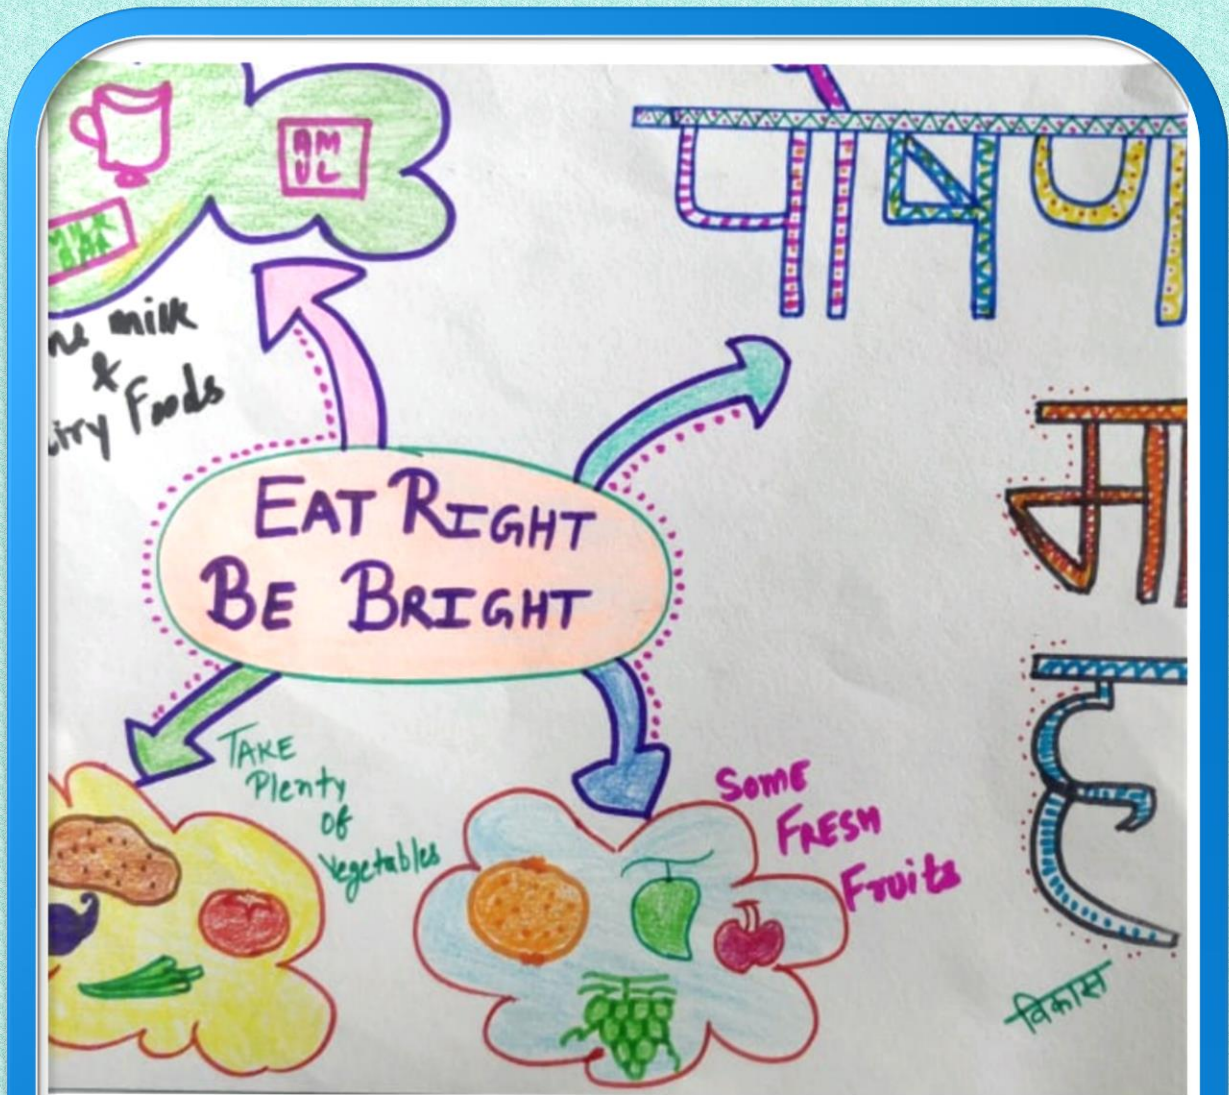 AM
UL
milk
&
Foods
पोषण
मा
ह
EAT RIGHT
BE BRIGHT
TAKE
Plenty
of
Vegetables
Some
FRESH
Fruits
विकास